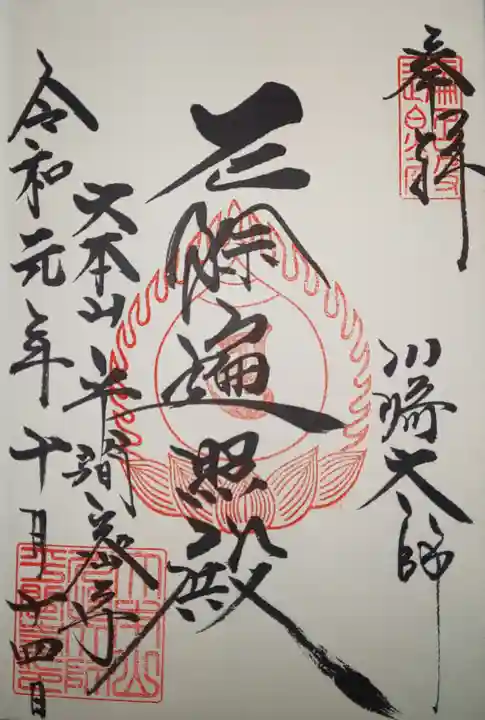 奉拝
川崎大師
厄除遍照殿
大本山平間密寺
令和元年十月十四日